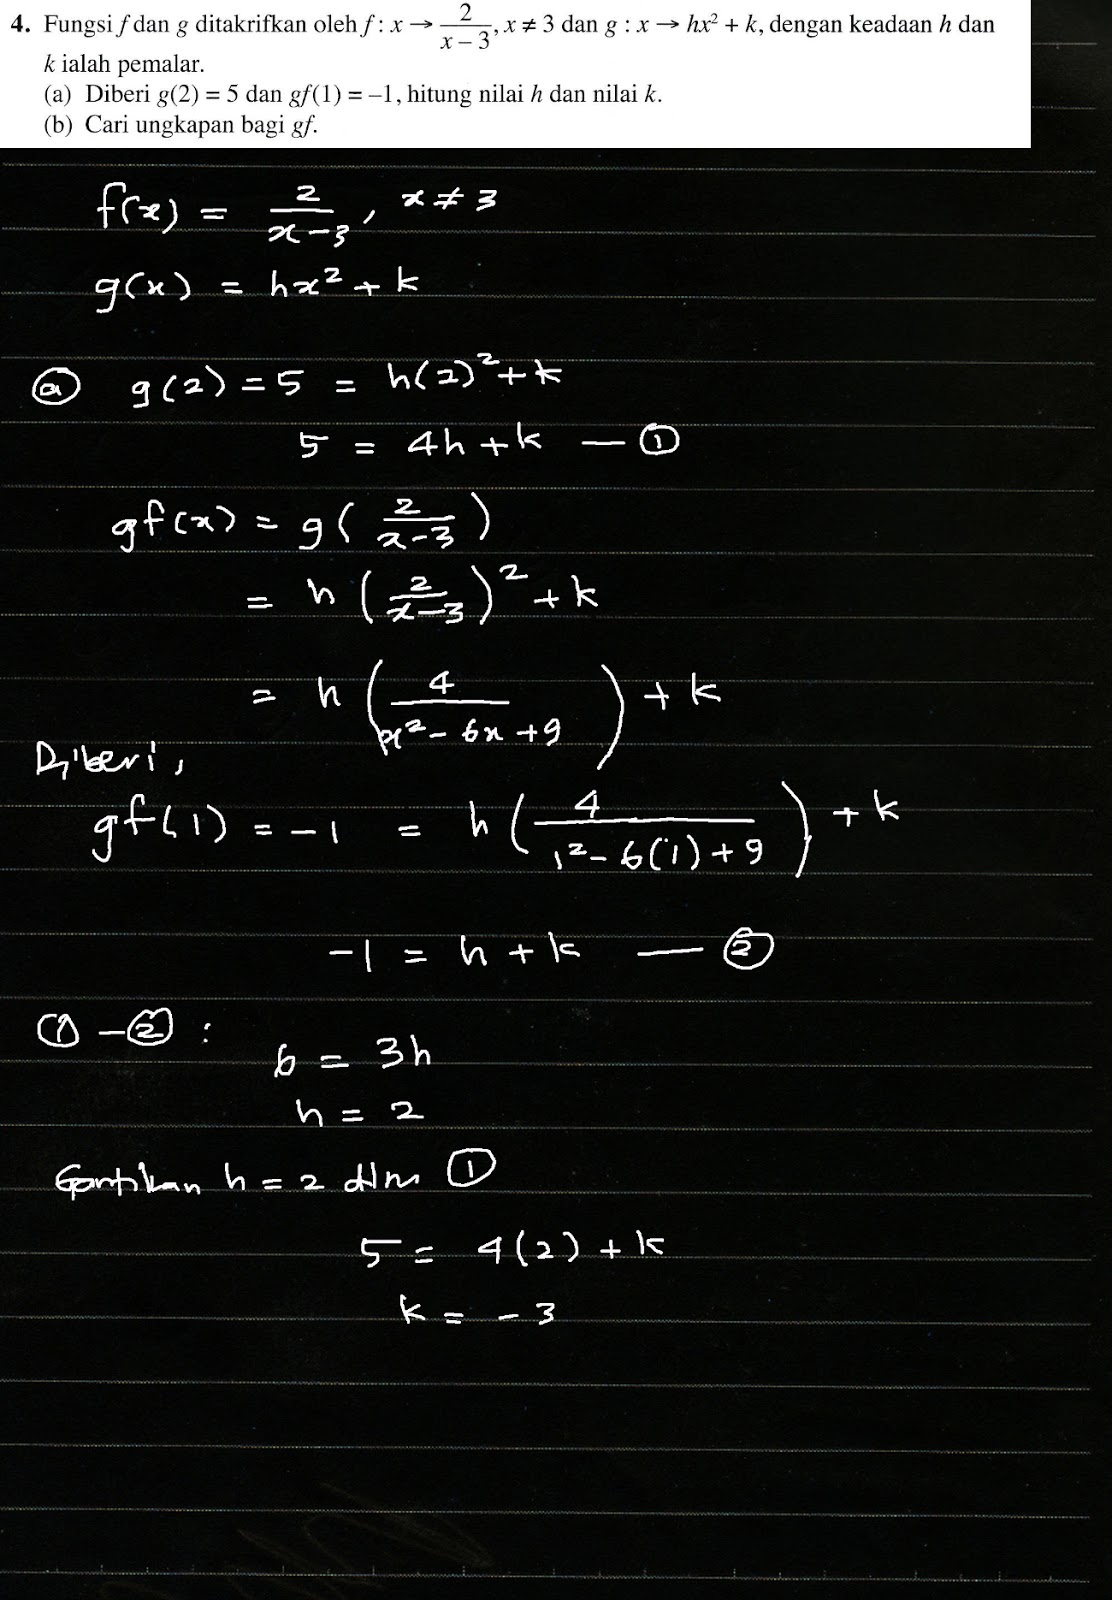 4. Fungsi f dan g ditakrifkan oleh f : x → 2/(x – 3), x ≠ 3 dan g : x → hx² + k, dengan keadaan h dan
k ialah pemalar.
(a) Diberi g(2) = 5 dan gf(1) = –1, hitung nilai h dan nilai k.
(b) Cari ungkapan bagi gf.
f(x) = 2/(x – 3), x ≠ 3
g(x) = hx² + k
ⓐ g(2) = 5 = h(2)² + k
5 = 4h + k — ①
gf(x) = g(2/(x – 3))
= h(2/(x – 3))² + k
= h(4/(x² – 6x + 9)) + k
Diberi,
gf(1) = –1 = h(4/(1² – 6(1) + 9)) + k
–1 = h + k — ②
① – ② :
6 = 3h
h = 2
Gantikan h = 2 dlm ①
5 = 4(2) + k
k = – 3